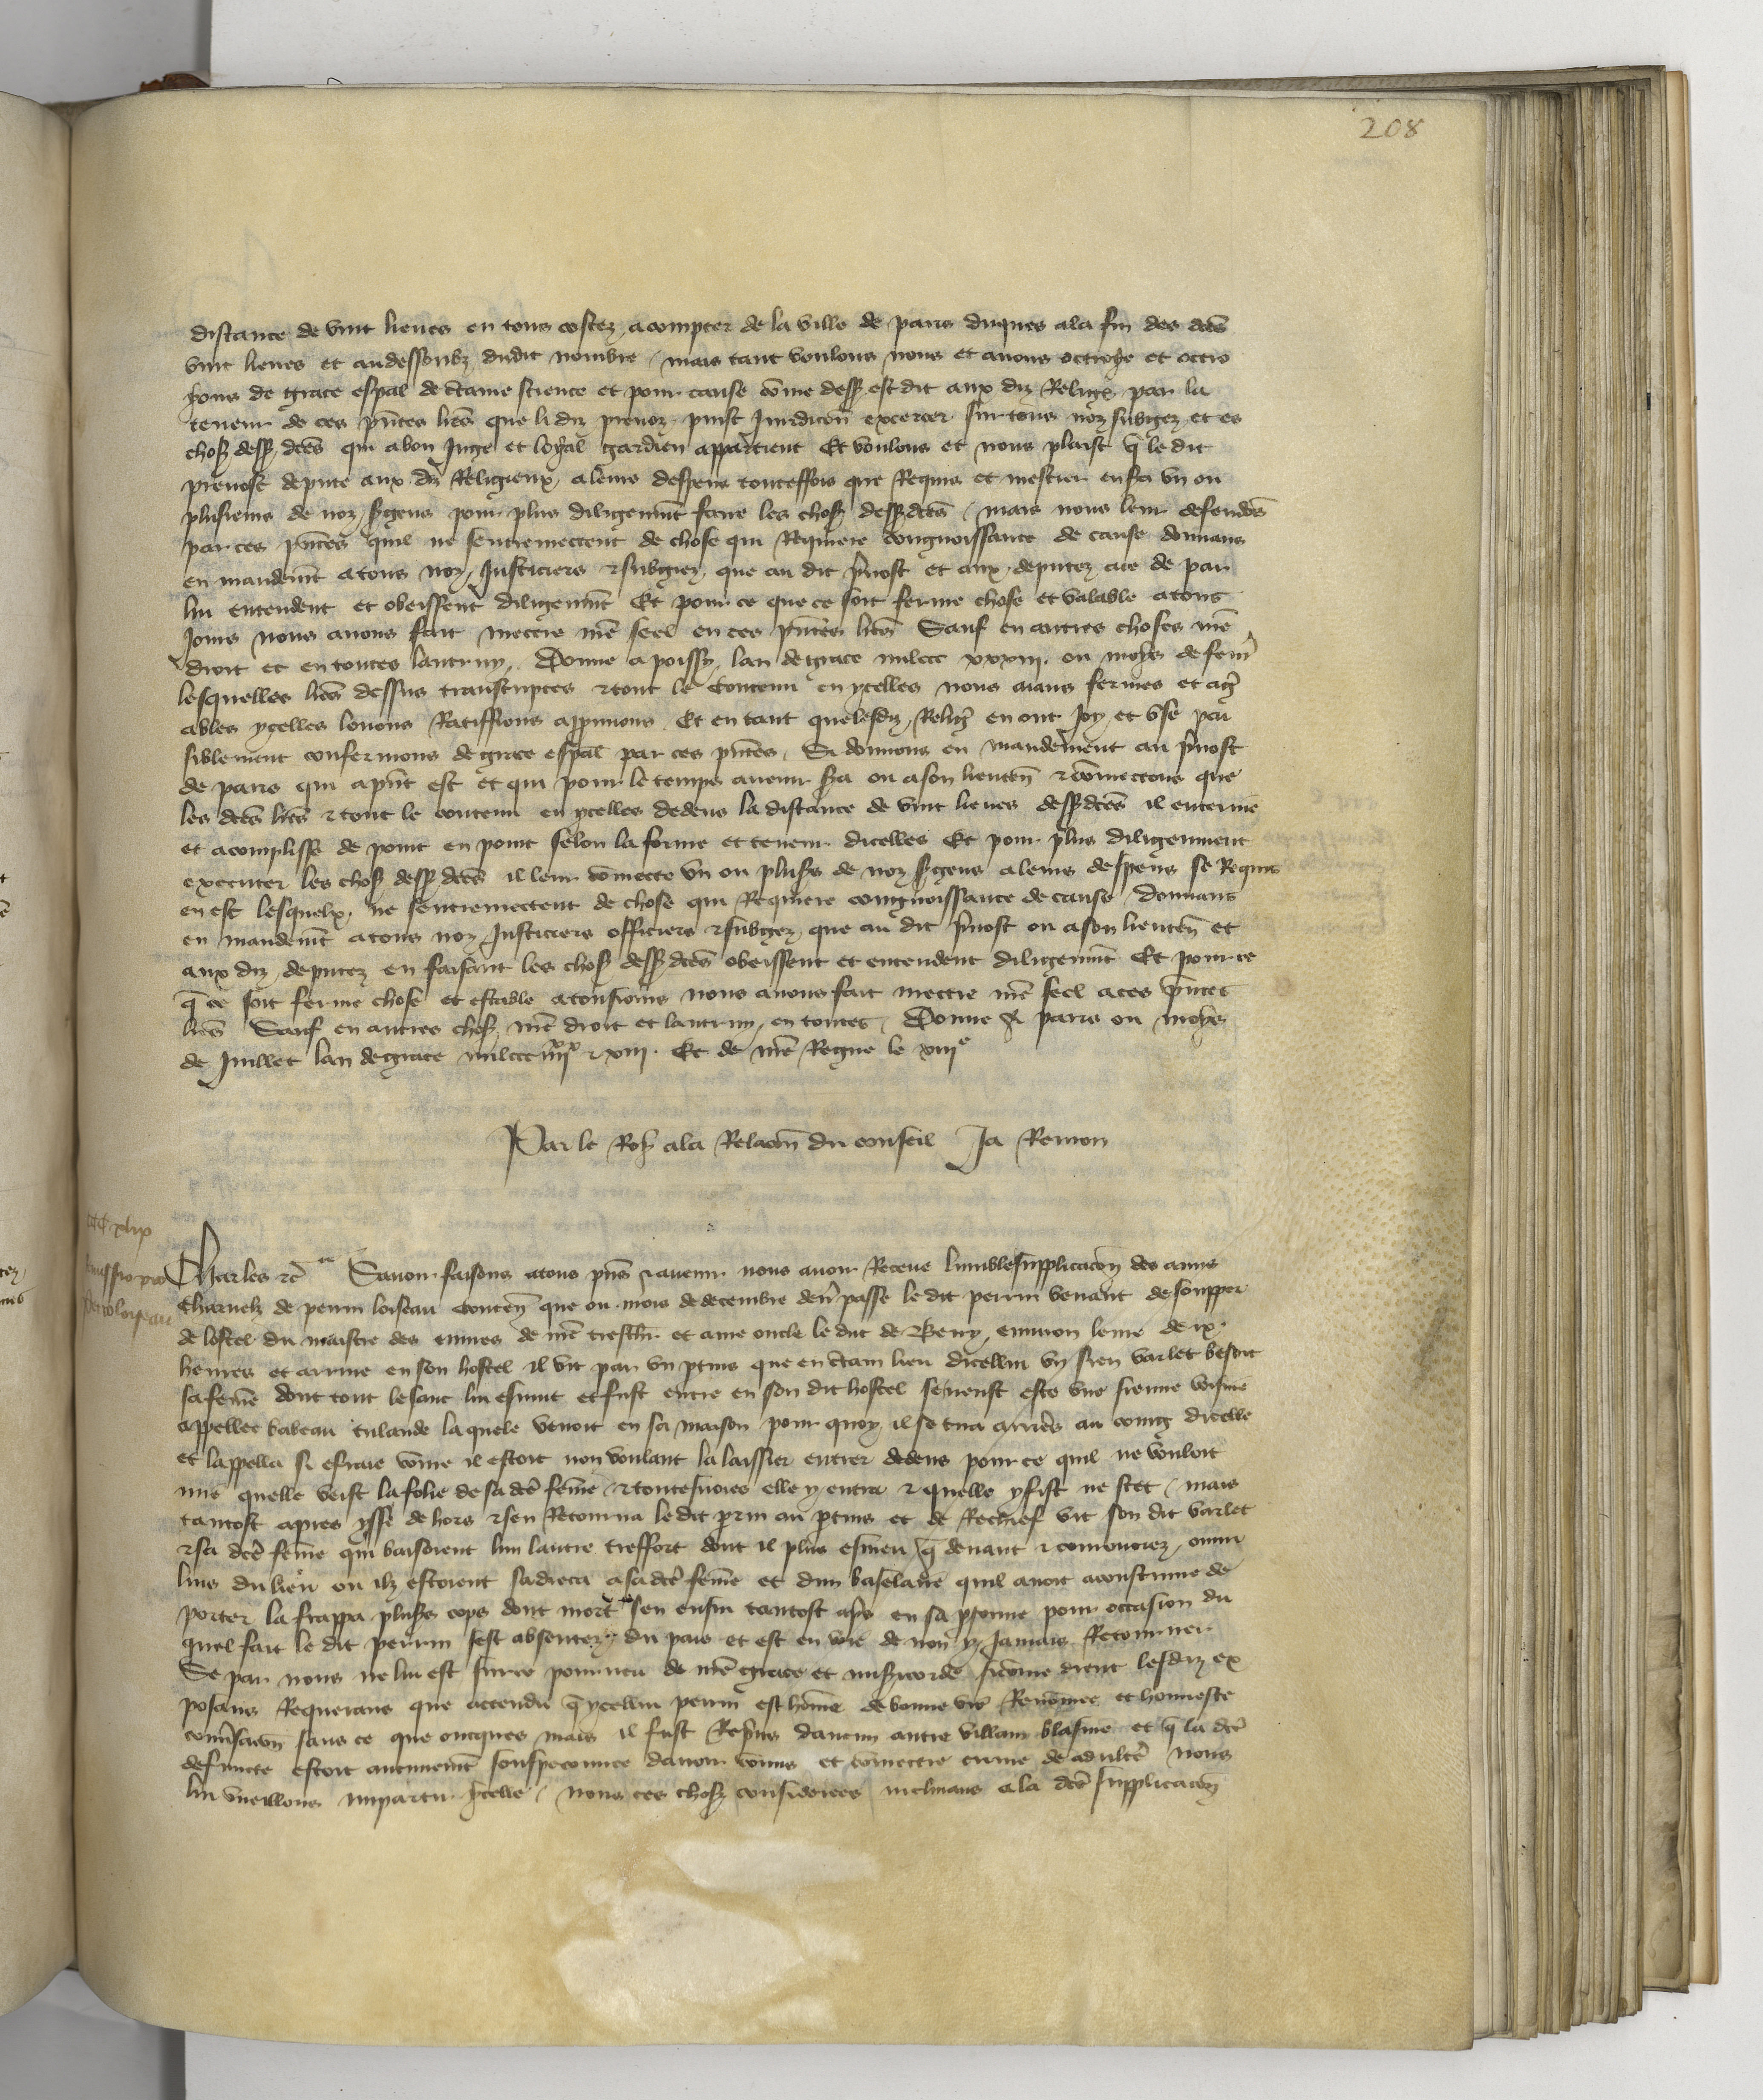 208
distance de vint lieues en tous costez acompter de la ville de paris duques ala fin des dc̃es
vint lieues et audessoubz dudit nombre / mais tant voulons nous et auons octroye et octro
yons de grace esp̃al de c̃taine science et pour cause cõme dess9 est dit aux diz Relig̃x par la
teneur de ces p̃ntes lr̃es que li diz preuoz puist Juridicõn excercer sur tous noz subgez et es
chos9 dess9 dc̃es qui abon Juge et loyal gardien appartient Et voulons et nous plaist q̃ le dit
preuost depute aux diz Religieux aleurs despens touteffois que Requis et mestier en s̃a vn ou
plusieurs de noz s̃gens pour plus diligenm̃t faire les chos9 dess9 dc̃es / mais nous leur defendõs
par ces p̃ntes quil ne sentremectent de chose qui Requiere congnoissance de cause donnans
en mandem̃t atous noz Justiciers & subgiez que au dit p̃uost et aux deputez aie de par
lui entendent et obeissent diligenm̃t Et pour ce que ce soit ferme chose et valable atous
Jours nous auons fait mectre nr̃e seel en ces p̃ntes lr̃es Sauf en autres choses nr̃e
droit et en toutes lautruy. Donne a poissy lan de grace milccc xxxiii. ou moys de feur̃
lesquelles lr̃es dessus transcriptes & tout le Contenu en ycelles nous aians fermes et ag̃
ables ycelles louons Ratiffions appruuons Et en tant que lesdiz Relig̃ en ont Joy et vse pai
siblement confermons de grace esp̃al par ces p̃ntes. Si donnons en mandement au p̃uost
de paris qui ap̃nt est et qui pour le temps auenir s̃a ou ason lieuten̄ & cõmectons que
les dc̃es lr̃es & tout le contenu en ycelles dedens la distance de vint lieues dess9 dc̃es il enterine
et acomplisse de point en point selon la forme et teneur dicelles Et pour plus diligenment
executer les chos9 dess9 dc̃es il leur cõmecte vn ou plus̃s de noz s̃gens aleurs despens se Requis
en est lesquelx ne sentremectent de chose qui Requiere congnoissance de cause / Donnans
en mandem̃t atous noz Justiciers officiers & subgez que au dit p̃uost ou ason lieuten̄ et
aux diz deputez en faisant les chos9 dess9 dc̃es obeissent et entendent diligenm̃t Et pource
q̃ ce soit ferme chose et estable atousiours nous auons fait mectre nr̃e seel aces p̃ntes
lr̃es Sauf en autres chos9 nr̃e droit et lautruy en toutes / Donne A paris ou moys
de Juillet lan de grace milccc iiii^xx & xiii. Et de nr̃e Regne le xiii^e
Par le Roy ala Relacõn du conseil Ja Remon
Charles &c̃ Sauoir faisons atous p̃ns & auenir nous auoir Receue lumble supplicacõn des amis
Charnelz de perrin loiseau Conten̄ que ou mois de decembre den̄r passe le dit perrin venant de soupper
de lostel du maistre des euures de nr̃e treschr̃ et ame oncle le duc de Berry, enuiron leure de ix.
heures et arriue en son hostel il vit par vn p̃tuis que en c̃tain lieu dicellui vn sien varlet besoit
sa fem̃e dont tout le sanc lui esmut et fust entre en son dit hostel se neust este vne sienne voisine
appellee babeau tulande laquele venoit en sa maison pour quoy il se tira arriers au coing dicelle
et lappella si esfraie cõme il estoit non voulant la laissier entrer dedens pource quil ne vouloit
mie quelle veist la folie de sa dc̃e fem̃e / & toutesuoies elle y entra & quelle y fist ne scet / mais
tantost apres ysse dehors & sen Retourna le dit p̃rin au p̃tuis et de Rechief vit son dit varlet
& sa dc̃e fem̃e qui baisoient lun lautre treffort dont il plus esmeu q̃ deuant & conroucez
du lieu ou ilz estoient sadreca a sa dc̃e fem̃e et dun baselaire quil auoit acoustume de
porter la frappa plus̃s cops dont mort sen ensuy tantost ap̃s en sa p̃sonne pour occasion du
quel fait le dit perrin sest absentez du pais et est en voie de non y Jamais Retourner
Se par nous ne lui est sur ce pourueu de nr̃e grace et mis̃icorde sicõme dient lesdiz ex
posans Requerans que actendu q̃ ycellui perrin est hom̃e de bonne vie Renom̃ee et honneste
conũsacõn sans ce que oncques mais il fust Rep̃ns daucun autre villain blasme et q̃ la dc̃e
defuncte estoit anciennem̃t souspeconnee dauoir cõmis et cõmectre crime de adult̃e nous
lui vueillons impartir ycelle / nous ces chos9 considerees inclinans ala dc̃e supplicacõn